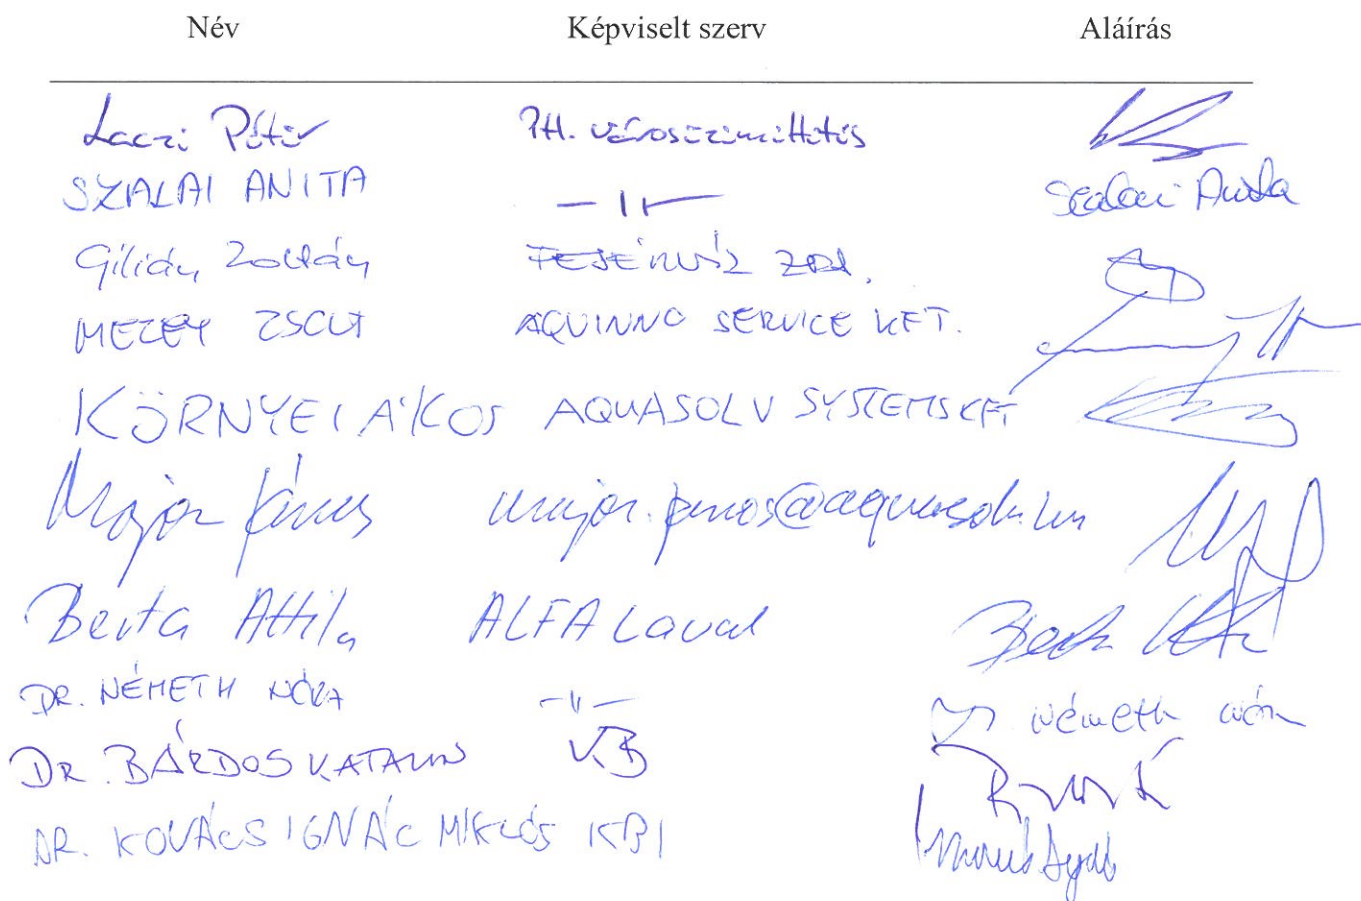 Név Képviselt szerv Aláírás
Laczi Péter PH.
SZALAI ANITA —||— Szalai Anita
Gilián Zoltán FEJÉRVÍZ ZRt.
MEZEY ZSOLT AQUINNO SERVICE KFT.
KÖRNYEI ÁKOS AQUASOLV SYSTEMS KFT
Major János major.janos@aquasolv.hu
Berta Attila ALFA Laval Berta Attila
DR. NÉMETH NÓRA —||— Dr Németh Nóra
DR. BÁRDOS KATALIN KB
DR. KOVÁCS IGNÁC MIKLÓS KBI